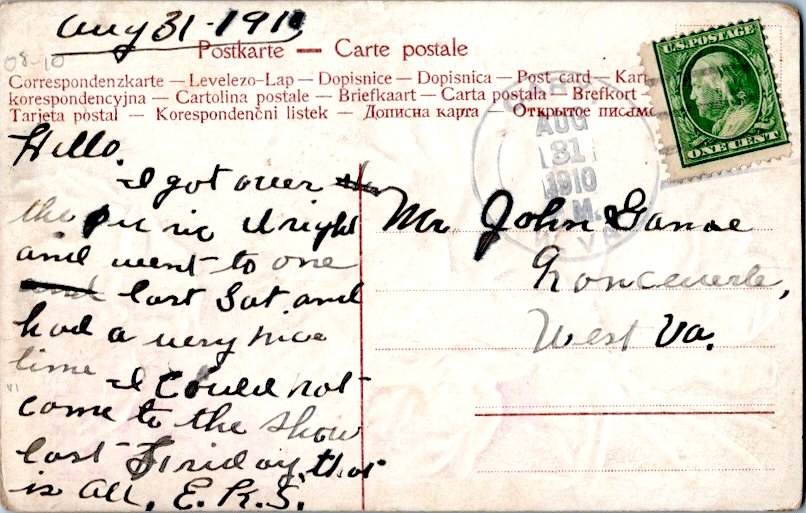 Aug 31-1910
08-10
Postkarte — Carte postale
Correspondenzkarte — Levelezo-Lap — Dopisnice — Dopisnica — Post card — Kart
korespondencyjna — Cartolina postale — Briefkaart — Carta postala — Brefkort —
Tarjeta postal — Korespondenčni listek — Дописна карта — Открытое писмо
U.S. POSTAGE
ONE CENT
AUG
31
1910
M.
Hello.
I got over
the picnic allright
and went to one
and last Sat. and
had a very nice
time I could not
come to the show
last Friday, that
is all, E.R.S.
Mr. John
Ronceverte,
West Va.